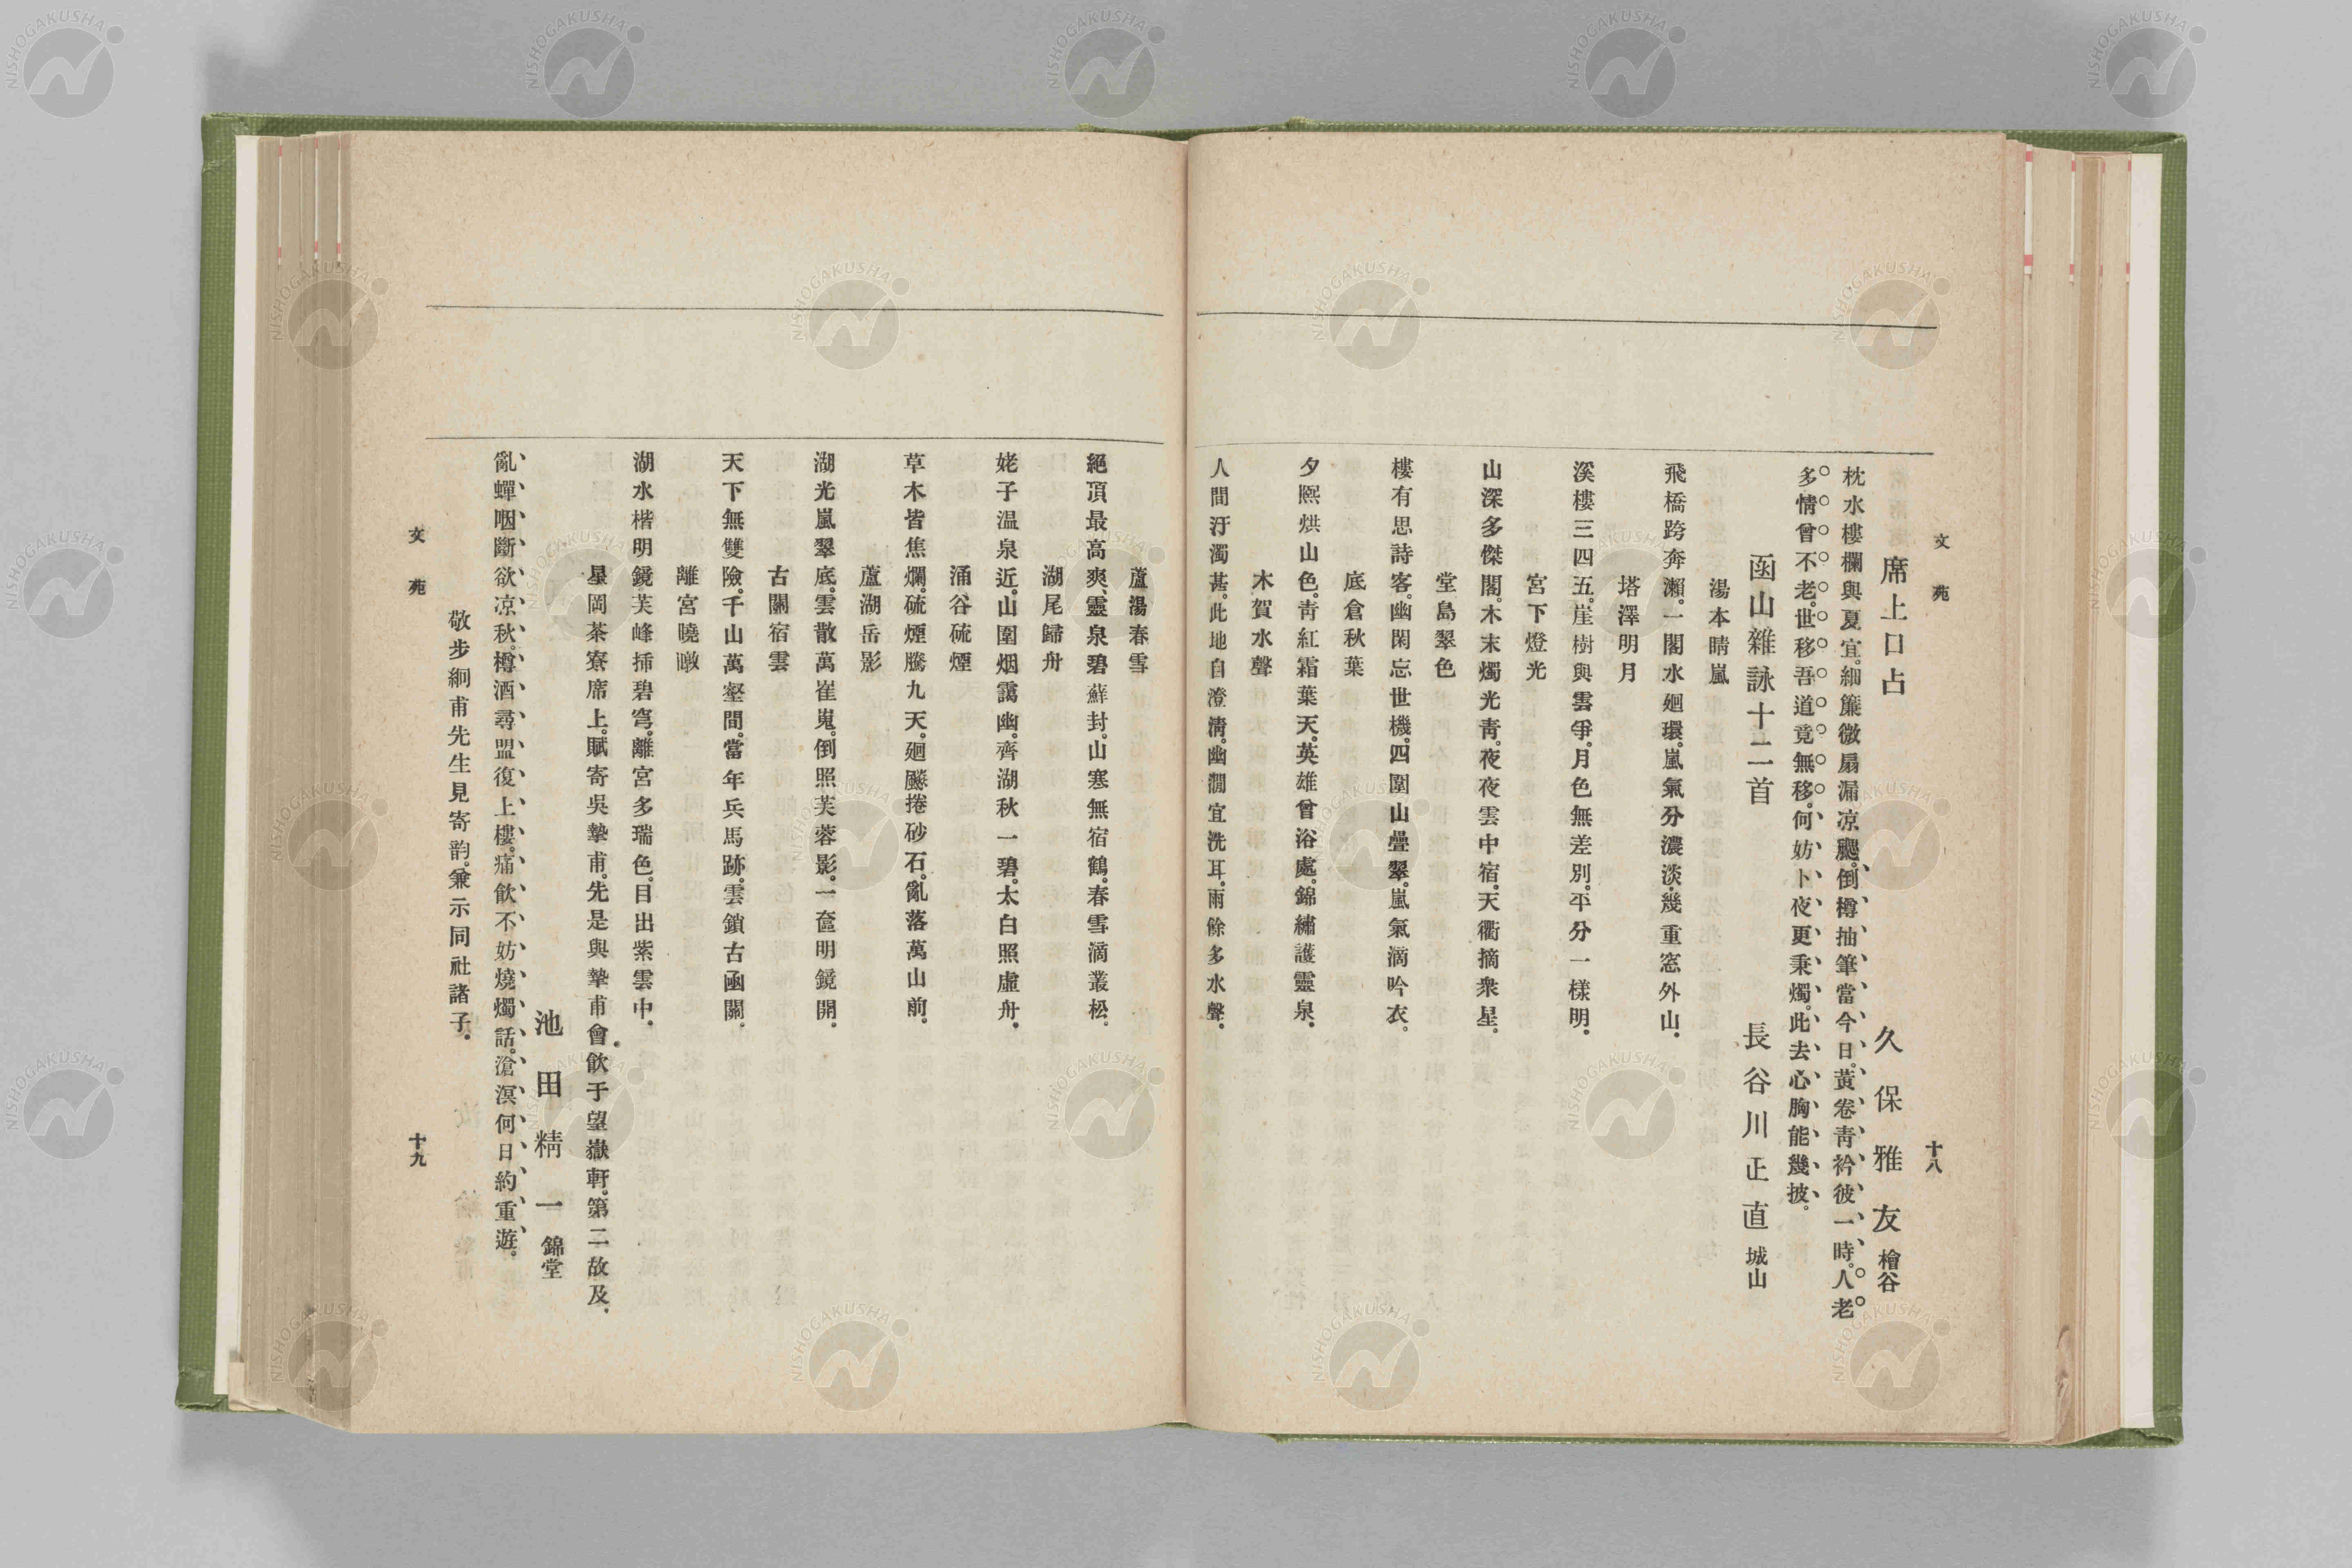 文苑
十八
席上口占
久保雅友 檜谷
枕水樓欄與夏宜。細簾微扇漏凉颸。倒樽抽筆當今日。黃卷靑衿彼一時。人老
多情曾不老。世移吾道竟無移。何妨卜夜更秉燭。此去心胸能幾披。
函山雜詠十二首
長谷川正直 城山
湯本晴嵐
飛橋跨奔瀨。一閣水廻環。嵐氣分濃淡。幾重窓外山。
塔澤明月
溪樓三四五。崖樹與雲爭。月色無差別。平分一樣明。
宮下燈光
山深多傑閣。木末燭光靑。夜夜雲中宿。天衢摘衆星。
堂島翠色
樓有思詩客。幽閑忘世機。四圍山疊翠。嵐氣滴吟衣。
底倉秋葉
夕熈烘山色。靑紅霜葉天。英雄曾浴處。錦繡護靈泉。
木賀水聲
人間汙濁甚。此地自澄淸。幽澗宜洗耳。雨餘多水聲。
蘆湯春雪
絕頂最高爽。靈泉碧蘚封。山寒無宿鶴。春雪滴叢松。
湖尾歸舟
姥子温泉近。山圍烟靄幽。齊湖秋一碧。太白照虛舟。
涌谷硫煙
草木皆焦爛。硫煙騰九天。廻飈捲砂石。亂落萬山前。
蘆湖岳影
湖光嵐翠底。雲散萬崔嵬。倒照芙蓉影。一奩明鏡開。
古關宿雲
天下無雙險。千山萬壑間。當年兵馬跡。雲鎖古函關。
離宮曉暾
湖水楷明鏡。芙峰揷碧穹。離宮多瑞色。目出紫雲中。
星岡茶寮席上。賦寄吳摯甫。先是與摯甫會飮于望嶽軒。第二故及。
池田精一 錦堂
亂蟬咽斷欲凉秋。樽酒尋盟復上樓。痛飮不妨燒燭話。滄溟何日約重遊。
敬步絅甫先生見寄韵。兼示同社諸子。
文苑
十九